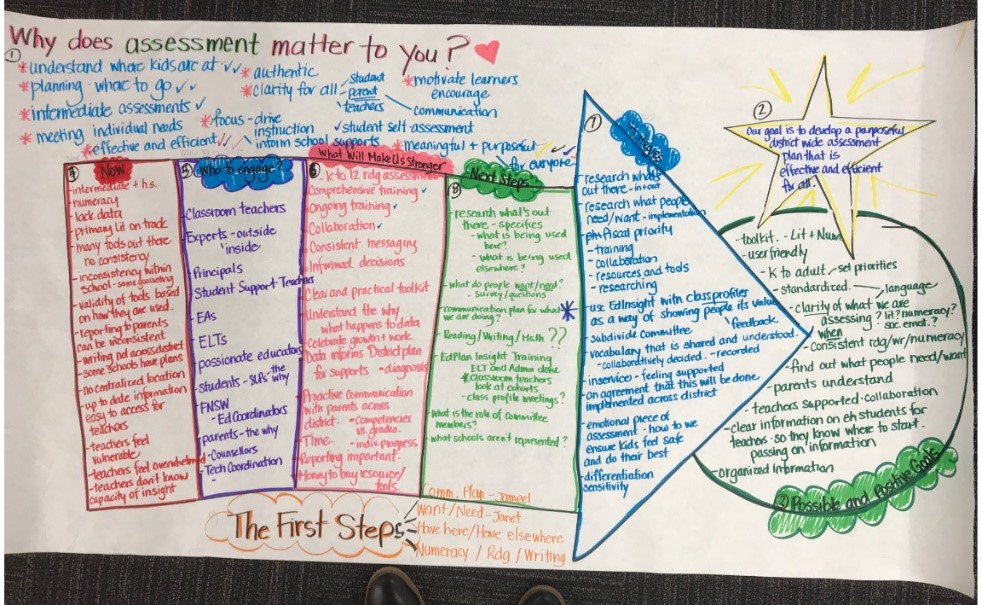 Why does assessment matter to you?
①
*understand where kids are at ✓✓
*planning where to go ✓✓
*intermediate assessments ✓
*meeting individual needs
*effective and efficient ✓✓
*authentic
*clarity for all
student
parent
teachers
communication
*focus - drive
instruction
inform school supports
*motivate learners
encourage
✓student self-assessment
*meaningful + purposeful
for everyone
②
Our goal is to develop a purposeful
district wide assessment
plan that is
effective and efficient
for all.
② Possible and Positive Goals
-toolkit - Lit + Num
-user friendly
- K to adult
set priorities
- standardized
language
- clarity of what we are
assessing? lit? numeracy?
soc. emot.?
when
- Consistent rdg/wr/numeracy
- find out what people need/want
- parents understand
- teachers supported - collaboration
- clear information on students for
teachers - so they know where to start.
passing on information
- organized information
Now
-intermediate + h.s.
- numeracy
- lack data
- primary lit on track
- many tools out there
no consistency
- inconsistency within
school
- validity of tools based
on how they are used.
- reporting to parents
can be inconsistent
- writing not across district
- some schools have plans
- no centralized location
- up to date information
easy to access for
teachers
- teachers feel
vulnerable
- teachers feel overwhelmed
- teachers don't know
capacity of insight
⑤ Who to engage
-Classroom teachers
-Experts - outside
'inside'
-Principals
-Student Support Teachers
-EAs
-ELTs
-passionate educators
-students - SLPs
the why
-FNSW
- Ed Coordinators
-parents - the why
-Counsellors
-Tech Coordination
⑥ What Will Make Us Stronger
- K to 12 rdg assessment
Comprehensive training ✓
Ongoing training ✓
Collaboration ✓
Consistent messaging
Informed decisions
Clear and practical toolkit
Understand the why
what happens to data
Celebrate growth + work
Data informs District plan
for supports - diagnosis
Proactive communication
with parents across
district. - competencies
vs. grades.
Time.
- indiv. progress
Reporting important.
Money to buy resources/
tools.
⑧ Next Steps
- research what's out
there - specifics
- what is being used
here?
- what is being used
elsewhere?
- what do people want/need?
- survey/questions
-communication plan for what
we are doing?
*
- Reading/Writing/Math ??
- EdPlan Insight Training
ELT and Admin done
*Classroom teachers
look at cohorts
- class profile meetings?
- what is the role of committee
members?
- what schools aren't represented?
⑦
- research what's
out there - in + out
- research what people
need/want - implementation
- fiscal priority
- training
- collaboration
- resources and tools
- researching
- use EdInsight with class profiles
as a way of showing people its value
feedback
- subdivide Committee
- vocabulary that is shared and understood.
- collaboratively decided - recorded
- inservice - feeling supported
- an agreement that this will be done
implemented across district
- emotional piece of
assessment - how to we
ensure kids feel safe
and do their best
- differentiation
sensitivity
The First Steps
Comm. Plan - Jameel
Want/Need - Janet
Have here/Have elsewhere
Numeracy / Rdg / Writing